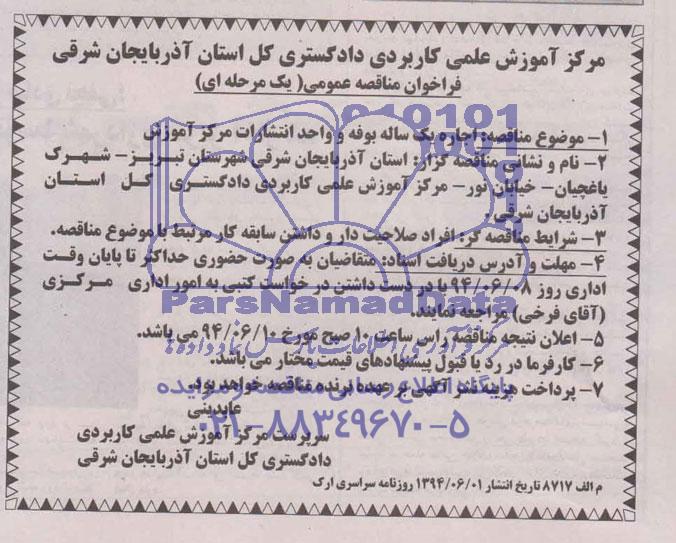 مرکز آموزش علمی کاربردی دادگستری کل استان آذربایجان شرقی
فراخوان مناقصه عمومی( یک مرحله ای)
۱- موضوع مناقصه: اجاره یک ساله بوفه و واحد انتشارات مرکز آموزش
۲- نام و نشانی مناقصه گزار: استان آذربایجان شرقی شهرستان تبریز- شهرک
یاغچیان- خیابان نور- مرکز آموزش علمی کاربردی دادگستری کل استان
آذربایجان شرقی.
۳- شرایط مناقصه گر: افراد صلاحیت دار و داشتن سابقه کار مرتبط با موضوع مناقصه.
۴- مهلت و آدرس دریافت اسناد: متقاضیان به صورت حضوری حداکثر تا پایان وقت
اداری روز ۹۴/۰۶/۰۸ با در دست داشتن در خواست کتبی به امور اداری مرکزی
(آقای فرخی) مراجعه نمایند.
۵- اعلان نتیجه مناقصه راس ساعت ۱۰ صبح مورخ ۹۴/۰۶/۱۰ می باشد.
۶- کارفرما در رد یا قبول پیشنهادهای قیمت مختار می باشد.
۷- پرداخت هزینه نشر آگهی بر عهده برنده مناقصه خواهد بود.
عابدینی
سرپرست مرکز آموزش علمی کاربردی
دادگستری کل استان آذربایجان شرقی
م الف ۸۷۱۷ تاریخ انتشار ۱۳۹۴/۰۶/۰۱ روزنامه سراسری ارک
ParsNamadData
پایگاه اطلاع رسانی مناقصه و مزایده
۰۲۱-۸۸۳۴۹۶۷۰-۵